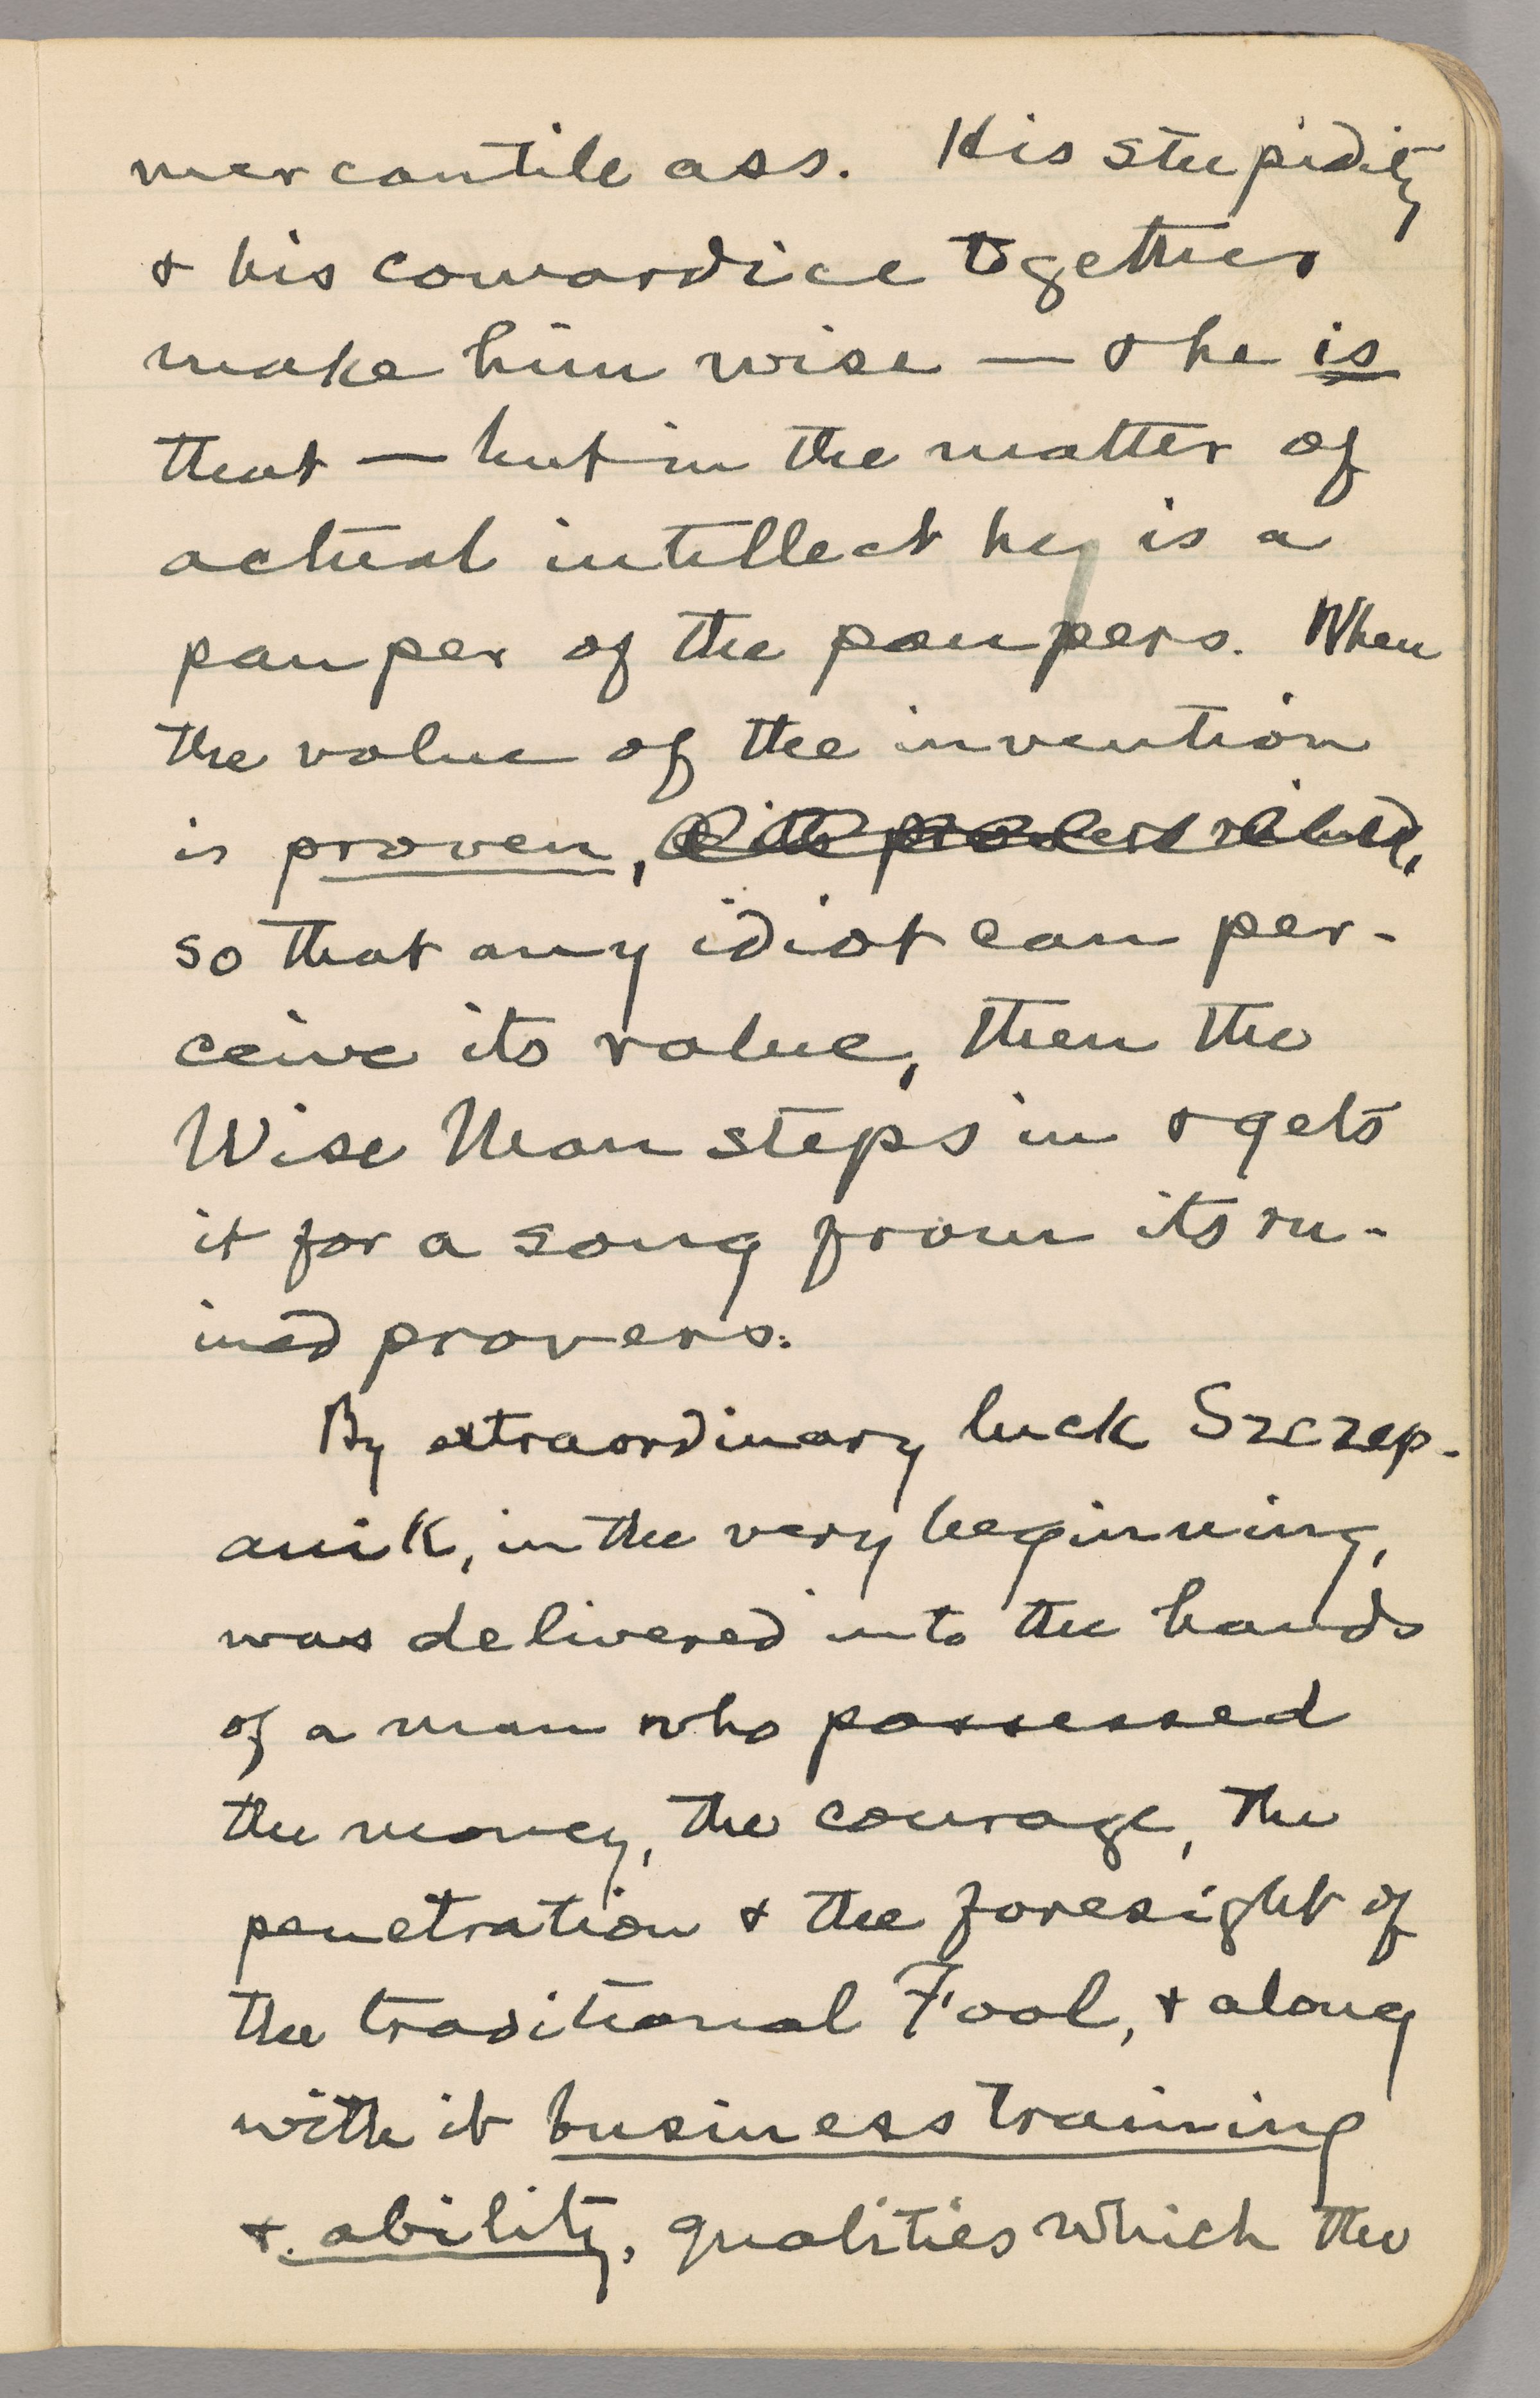 mercantile ass. His stupidity
& his cowardice together
make him wise — & he is
that — but in the matter of
actual intellect he is a
pauper of the paupers. When
the value of the invention
is proven,
so that any idiot can per-
ceive its value, then the
Wise Man steps in & gets
it for a song from its ru-
ined provers.
By extraordinary luck Szczep-
anik, in the very beginning,
was delivered into the hands
of a man who possessed
the money, the courage, the
penetration & the foresight of
the traditional Fool, & along
with it business training
& ability, qualities which the